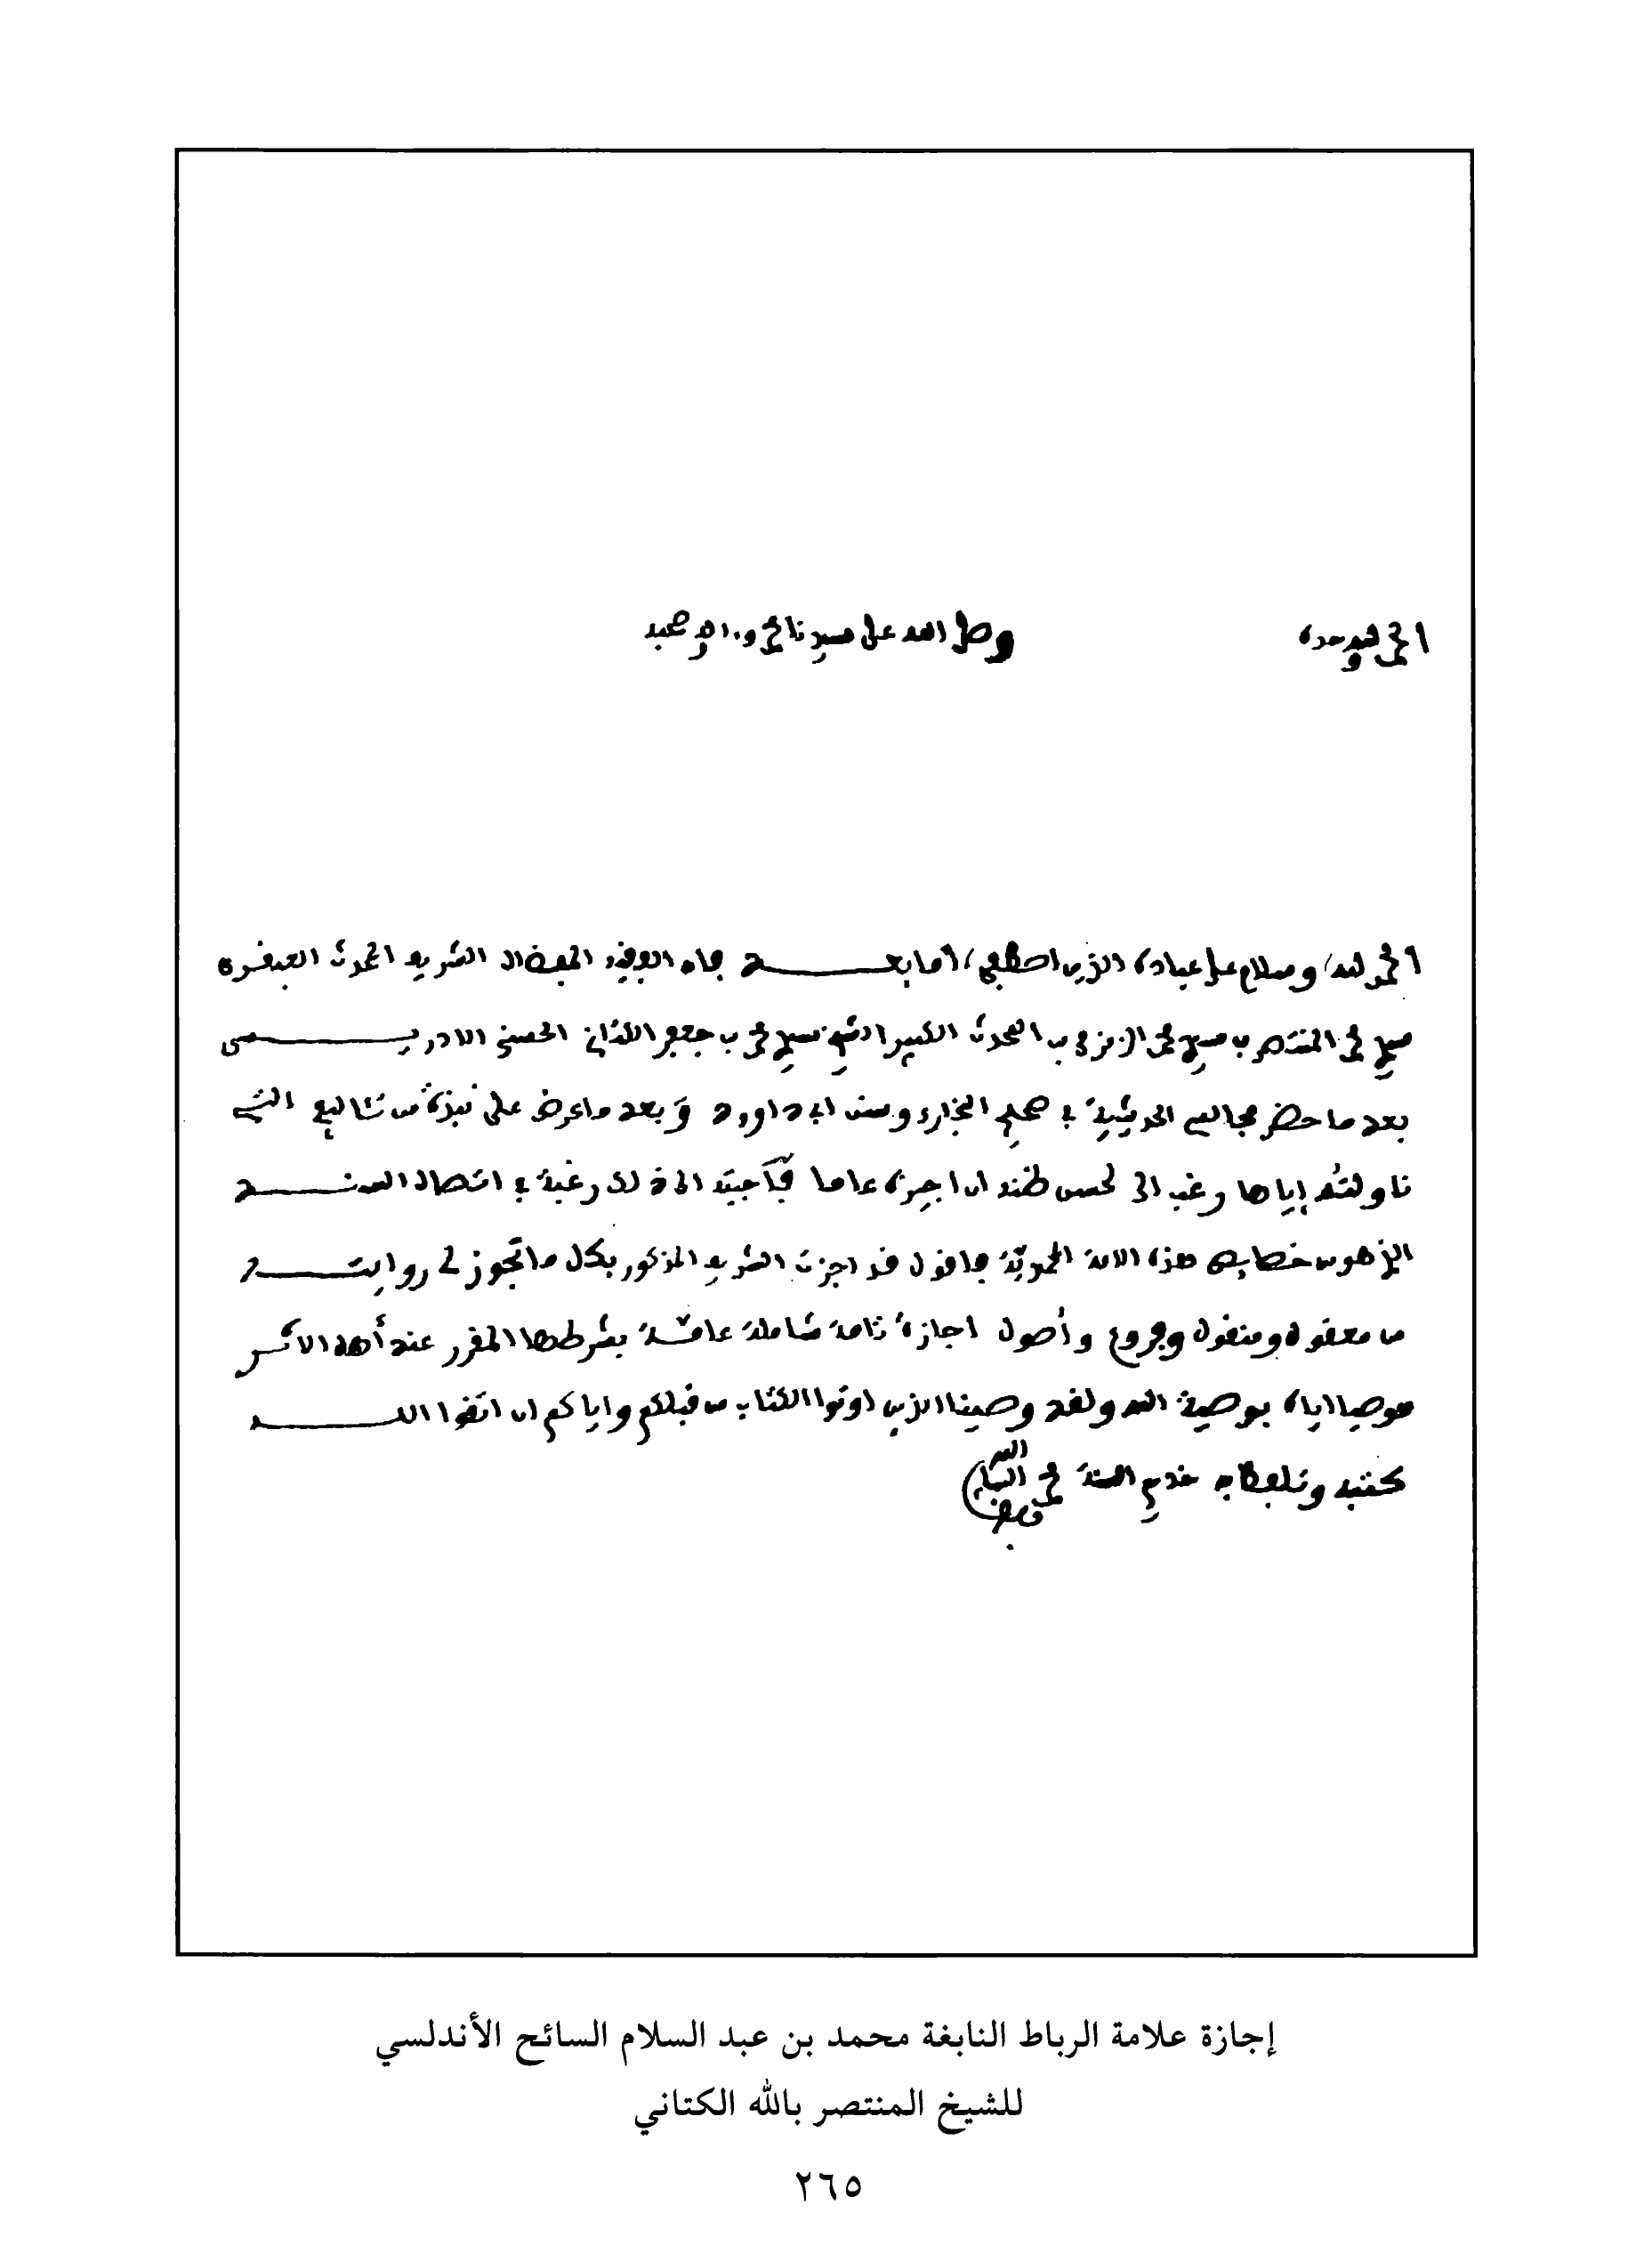 الحمد لله وحده وصلى الله على سيدنا محمد وآله وصحبه
الحمد لله وسلام على عباده الذين اصطفى، أما بعد فإن الفقيه المفضال الشريف المحدث
سيدي محمد المنتصر بن سيدي محمد الزمزمي بن المحدث الكبير الشيخ سيدي محمد بن جعفر الكتاني الحسني الادريسي
بعد ما حضر مجالسي الحديثية في صحيح البخاري وسنن ابي داوود وبعد ما عرض على نبذة من تئاليفي التي
ناولته إياها رغب الى لحسن ظنه ان اجيزه عاما فأجبته الى ذلك رغبة في اتصال السند
الذي هو من خصايص هذه الامة المحمدية فاقول قد اجزت الشريف المذكور بكل ما تجوز لي روايته
من معقول ومنقول وفروع وأصول اجازة تامة شاملة عامة بشرطها المقرر عند أهل الاثر
موصيا اياه بوصية الله ولقد وصينا الذين اوتوا الكتاب من قبلكم واياكم ان اتقوا الله
كتبه وتلفظ به خديم السنة محمد السايح
إجازة علامة الرباط النابغة محمد بن عبد السلام السائح الأندلسي
للشيخ المنتصر بالله الكتاني
٢٦٥